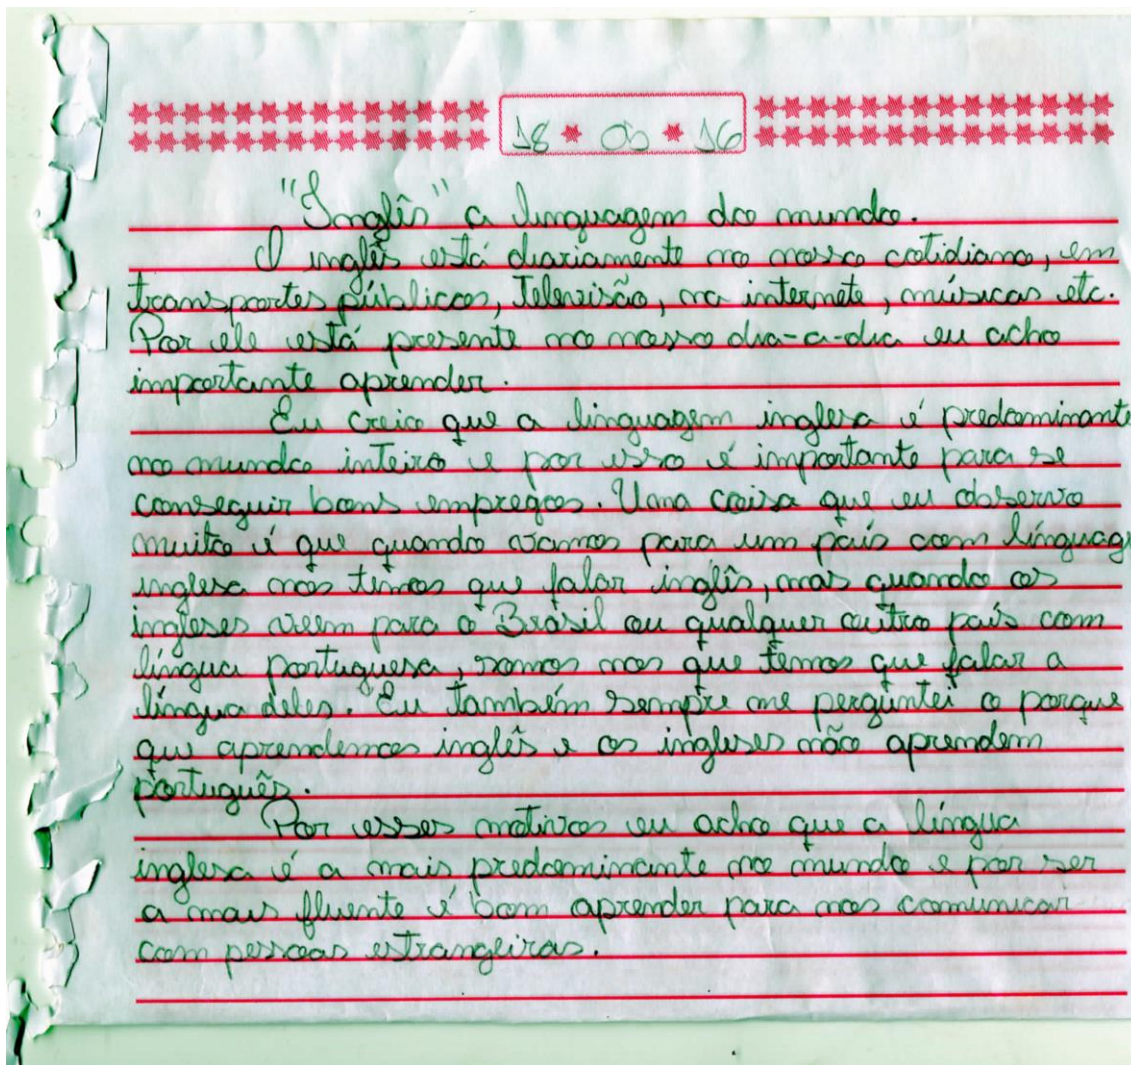 18 * 05 * 16
"Inglês" a linguagem do mundo.
O inglês está diariamente no nosso cotidiano, em
transportes públicos, televisão, na internete, músicas etc.
Por ele está presente no nosso dia-a-dia eu acho
importante aprender.
Eu creio que a linguagem inglesa é predominante
no mundo inteiro e por isso é importante para se
conseguir bons empregos. Uma coisa que eu observo
muito é que quando vamos para um país com línguag
inglesa nos temos que falar inglês, mas quando os
ingleses veem para o Brasil ou qualquer outro país com
língua portuguesa, somos nos que temos que falar a
língua deles. Eu também sempre me perguntei o porque
que aprendemos inglês e os ingleses não aprendem
português.
Por esses motivos eu acho que a língua
inglesa é a mais predominante no mundo e por ser
a mais fluente é bom aprender para nos comunicar
com pessoas estrangeiras.